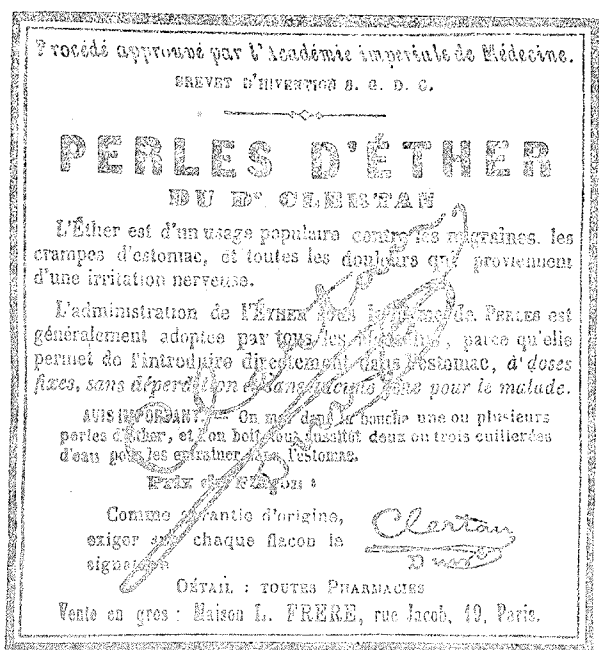 Procédé approuvé par l'Académie impériale de Médecine.
BREVET D'INVENTION S. G. D. G.
PERLES D'ÉTHER
DU Dr CLERTAN
L'Éther est d'un usage populaire contre les migraines, les
crampes d'estomac, et toutes les douleurs qui proviennent
d'une irritation nerveuse.
L'administration de l'ÉTHER sous la forme de PERLES est
généralement adoptée par tous les médecins, parce qu'elle
permet de l'introduire directement dans l'estomac, à doses
fixes, sans déperdition et sans aucune gêne pour le malade.
AVIS IMPORTANT. — On met dans la bouche une ou plusieurs
perles d'éther, et l'on boit tout aussitôt deux ou trois cuillerées
d'eau pour les entraîner dans l'estomac.
Prix du Flacon :
Comme garantie d'origine,
exiger sur chaque flacon la
signature
Clertan
DÉTAIL : TOUTES PHARMACIES
Vente en gros : Maison L. FRERE, rue Jacob, 19, Paris.